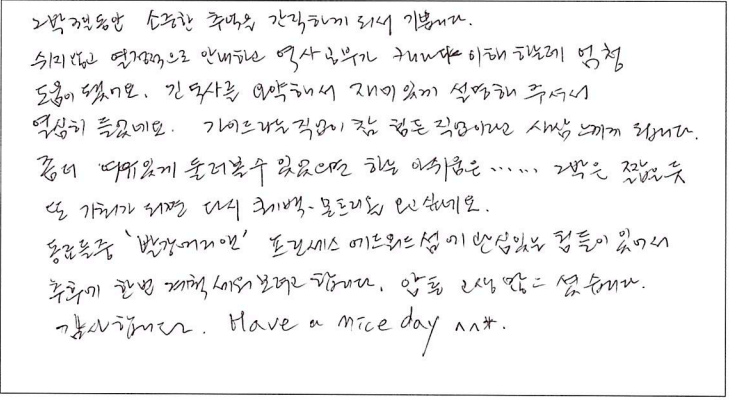 2박 3일동안 소중한 추억을 간직하게 되서 기쁩니다.
쉬지않고 열정적으로 안내하고 역사공부가 캐나다 이해하는데 엄청
도움이 됐어요. 긴 역사를 요약해서 재미있게 설명해 주셔서
열심히 들었네요. 가이드라는 직업이 참 힘든 직업이라고 새삼 느끼게 됩니다.
좀더 여유있게 둘러볼수 있었으면 하는 아쉬움은 ...... 2박은 짧은듯
또 기회가 되면 다시 퀘백·몬트리올 오고싶네요.
동료들중 '빨강머리앤' 프린세스 에드워드 섬에 관심있는 팀들이 있어서
추후에 한번 계획 세워보려고 합니다. 암튼 고생 많으셨습니다.
감사합니다. Have a nice day ^^*.